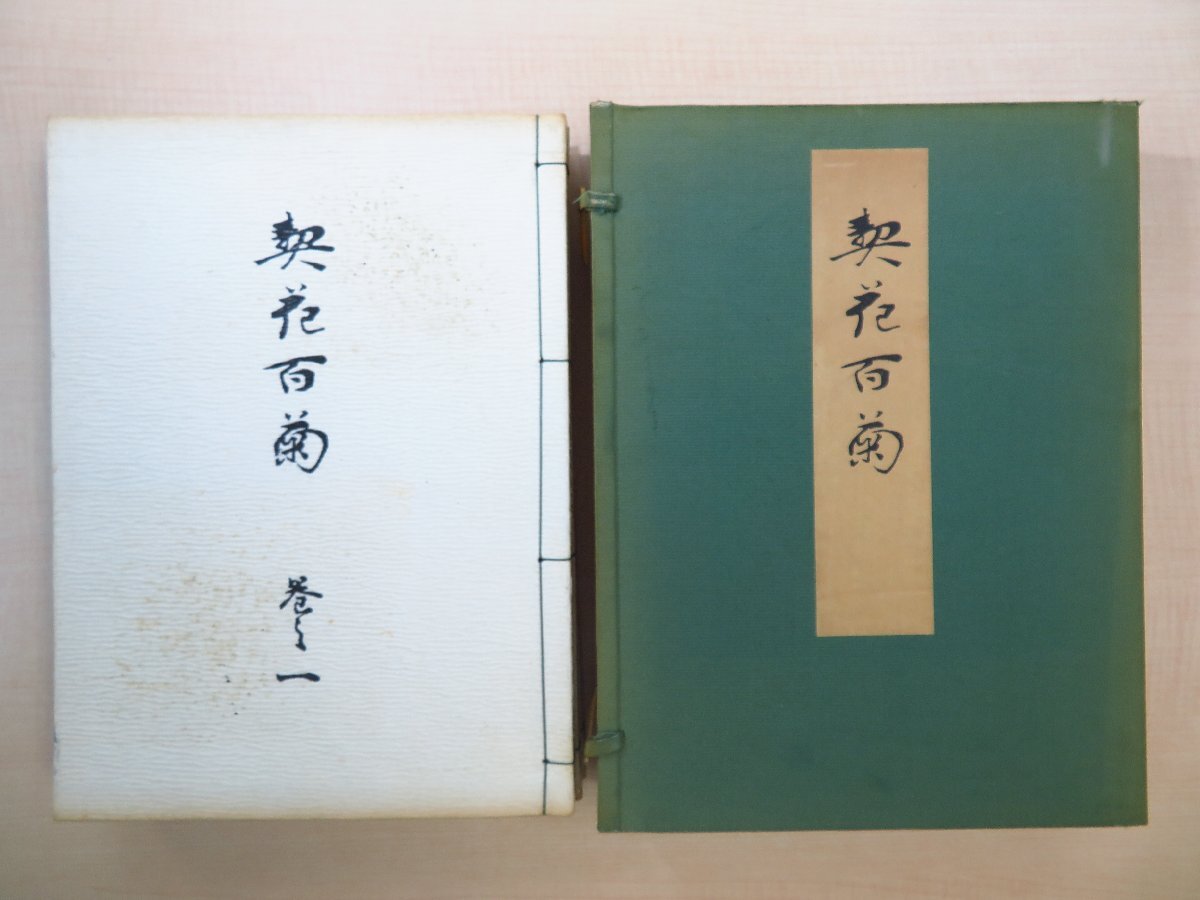 契花百菊
巻之一
契花百菊